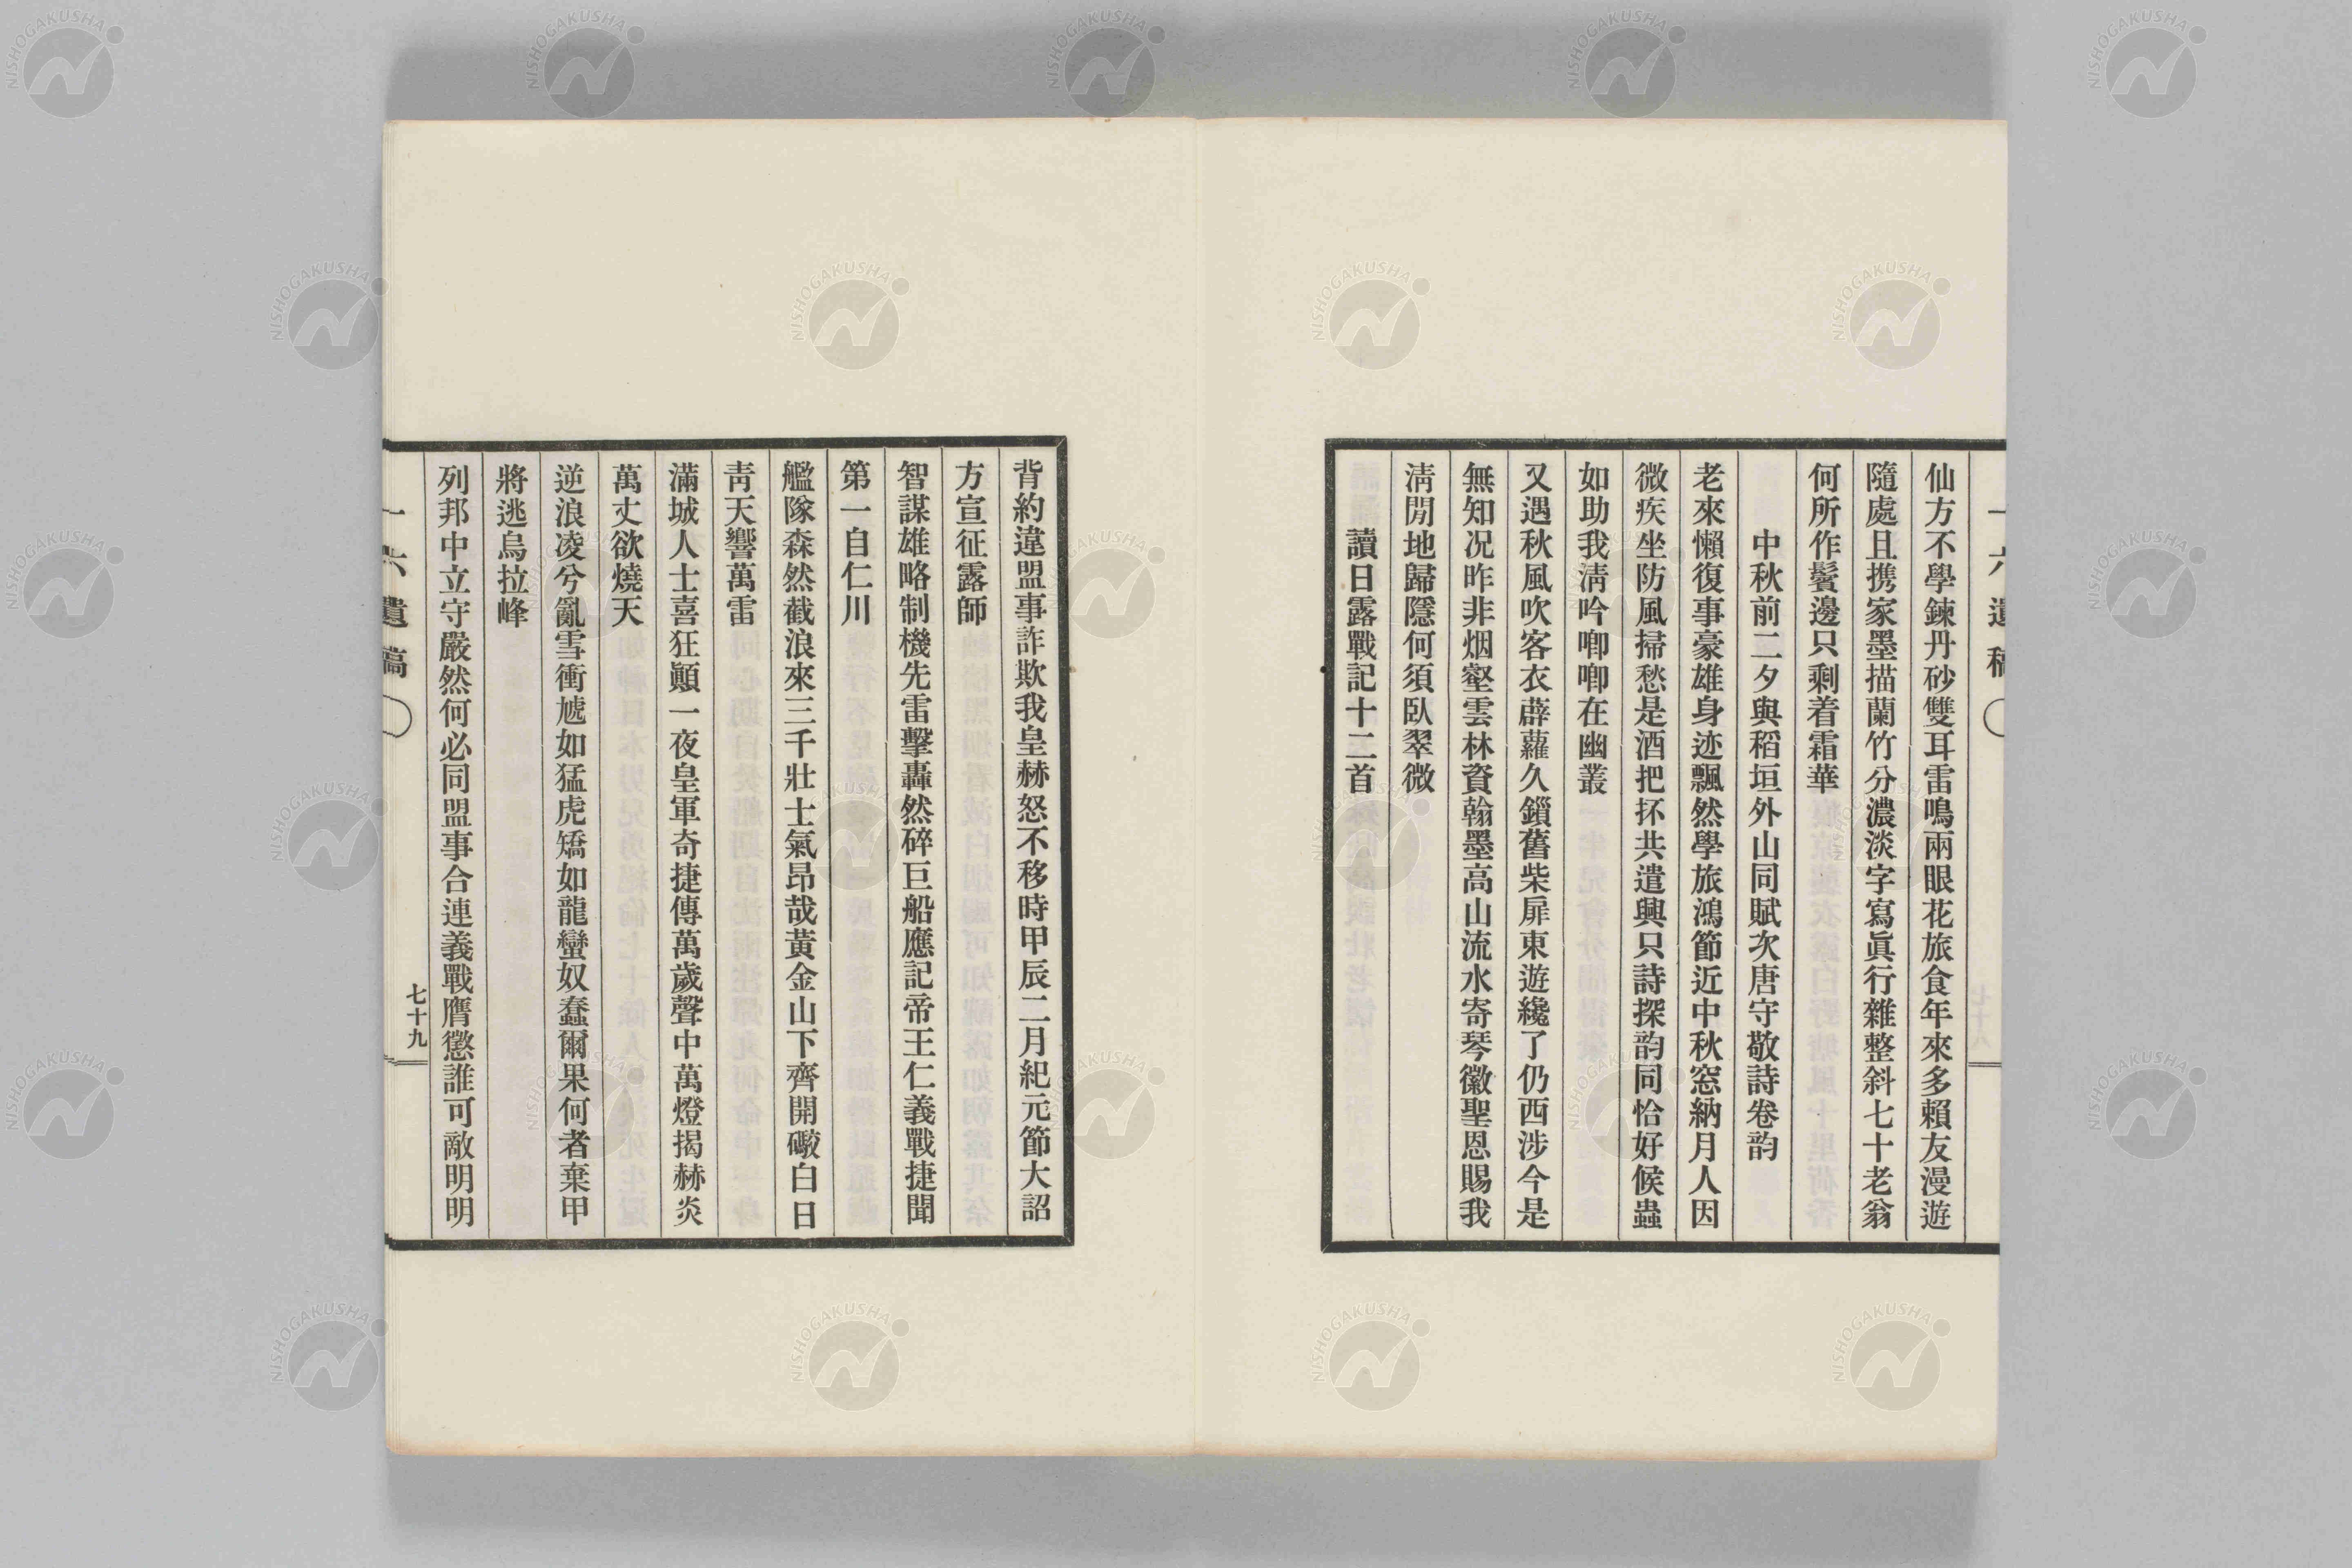 一六遺稿
仙方不學鍊丹砂雙耳雷鳴兩眼花旅食年來多賴友漫遊
隨處且携家墨描蘭竹分濃淡字寫眞行雜整斜七十老翁
何所作鬢邊只剩着霜華
中秋前二夕與稻垣外山同賦次唐守敬詩卷韵
老來懶復事豪雄身迹飄然學旅鴻節近中秋窓納月人因
微疾坐防風掃愁是酒把抔共遣興只詩探韵同恰好候蟲
如助我淸吟喞喞在幽叢
又遇秋風吹客衣薜蘿久鎻舊柴扉東遊纔了仍西涉今是
無知况昨非烟壑雲林資翰墨高山流水寄琴徽聖恩賜我
淸閒地歸隱何須臥翠微
讀日露戰記十二首
背約違盟事詐欺我皇赫怒不移時甲辰二月紀元節大詔
方宣征露師
智謀雄略制機先雷擊轟然碎巨船應記帝王仁義戰捷聞
第一自仁川
艦隊森然截浪來三千壯士氣昂哉黃金山下齊開礮白日
靑天響萬雷
滿城人士喜狂顚一夜皇軍奇捷傳萬歲聲中萬燈揭赫炎
萬丈欲燒天
逆浪凌兮亂雪衝虓如猛虎矯如龍蠻奴蠢爾果何者棄甲
將逃烏拉峰
列邦中立守嚴然何必同盟事合連義戰膺懲誰可敵明明
一六遺稿
七十九
NISHOGAKUSHA